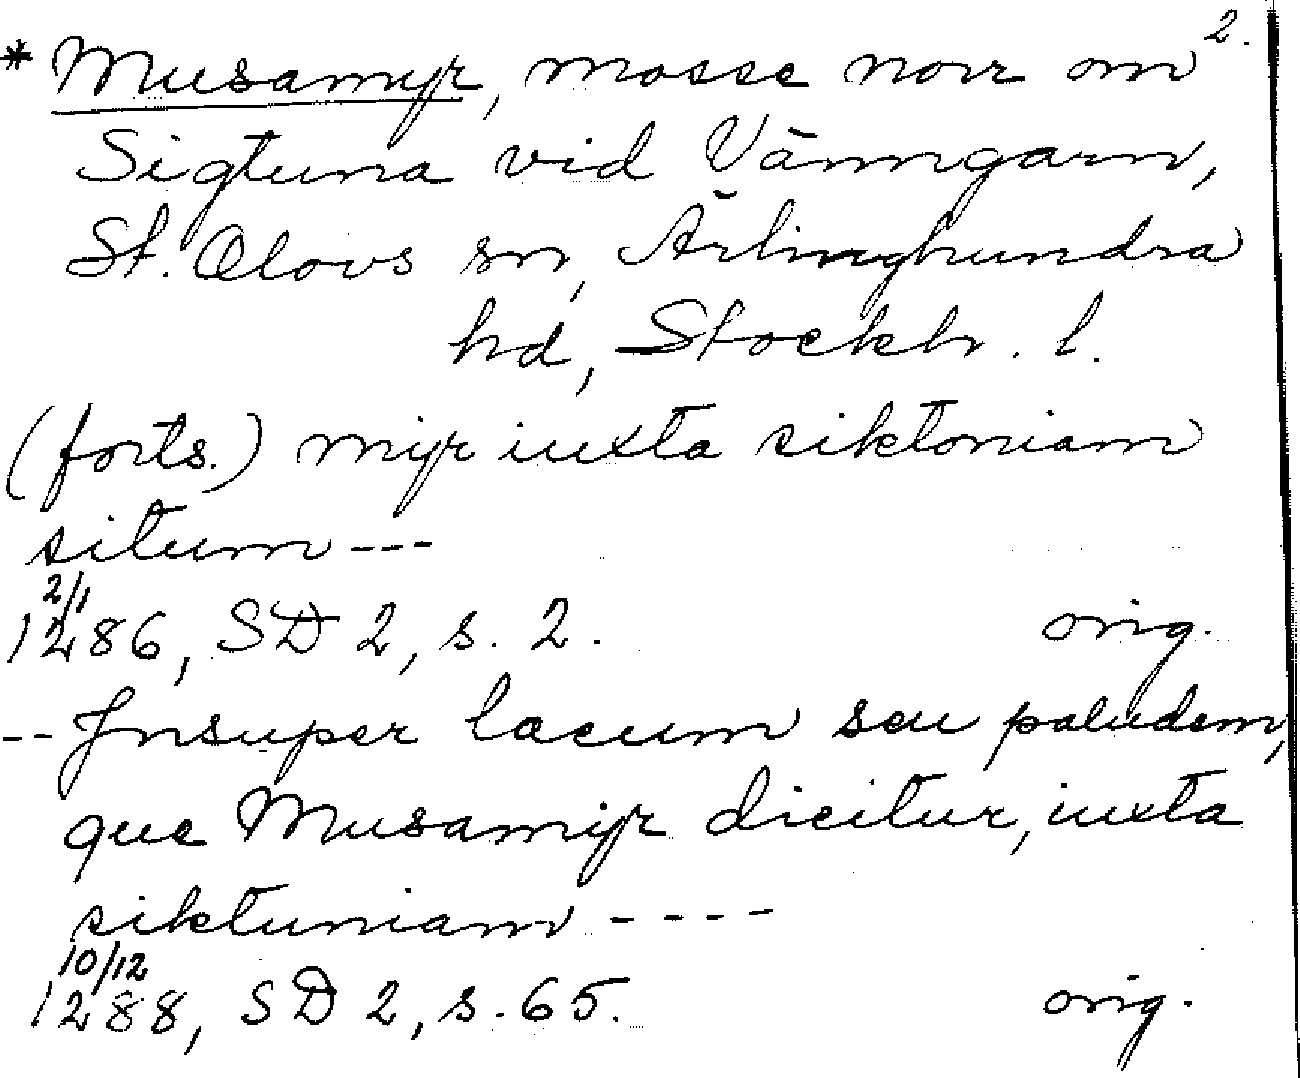 2.
* Musamyr, mosse norr om
Sigtuna vid Vänngarn,
St. Olovs sn, Ärlinghundra
hd, Stockh. l.
(forts.) myr iuxta siktoniam
situm ---
2/1
1286, SD 2, s. 2. orig.
-- Jnsuper lacum seu paludem,
que Musamyr dicitur, iuxta
siktuniam ----
10/12
1288, SD 2, s. 65. orig.